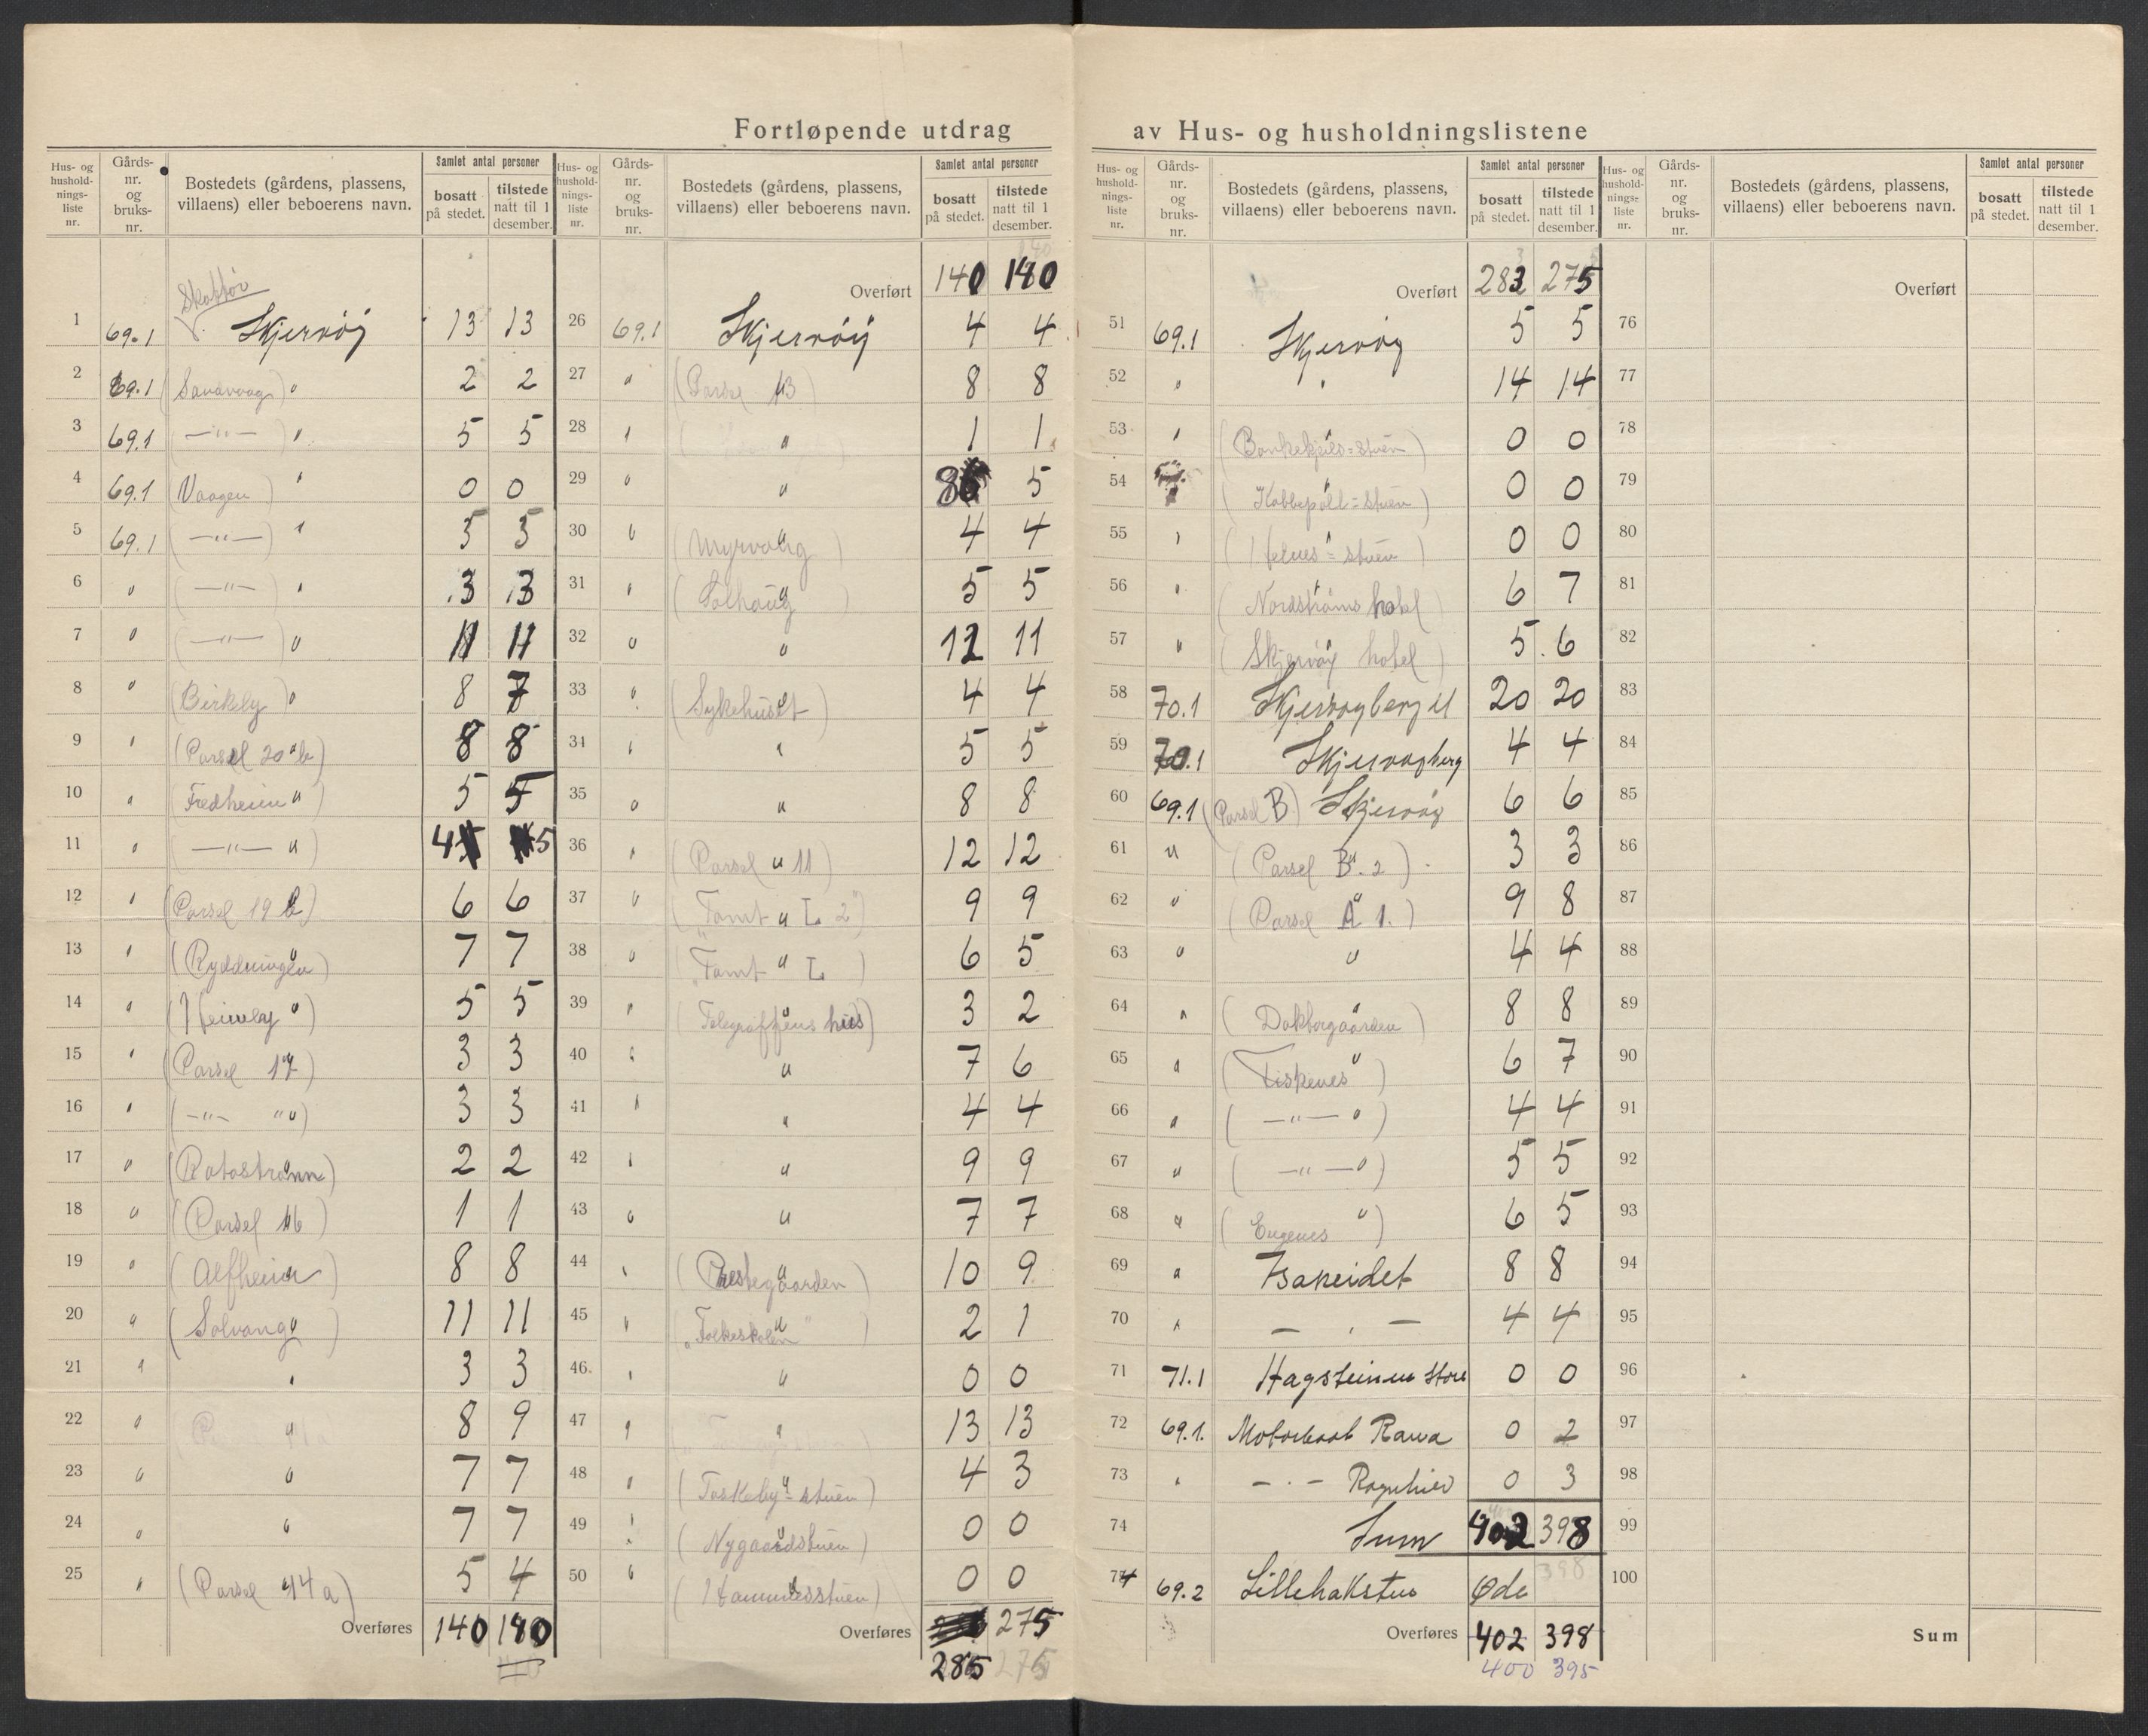 Fortløpende utdrag av Hus- og husholdningslistene
Hus- og husholdnings-liste nr. Gårds-nr. og bruks-nr. Bostedets (gårdens, plassens, villaens) eller beboerens navn. Samlet antal personer bosatt på stedet. tilstede natt til 1 desember.
1 69.1 Skjervöy 13 13
2 69.1 (Sandvaag) " 2 2
3 69.1 ( —"— ) " 5 5
4 69.1 (Vaagen) " 0 0
5 69.1 ( —"— ) " 3 3
6 " ( —"— ) " 3 3
7 " ( —"— ) " 11 11
8 " (Birkely) " 8 7
9 " (Parsel 20 b) " 8 8
10 " (Fredheim) " 5 5
11 " ( —"— ) " 4 5
12 " (Parsel 19 b) 6 6
13 " (Ryddningen) " 7 7
14 " (Heimly) " 5 5
15 " (Parsel 17) " 3 3
16 " ( —"— " ) " 3 3
17 " (Rotostrann) " 2 2
18 " (Parsel 16) " 1 1
19 " (Alfheim) " 8 8
20 " (Solvang) " 11 11
21 " " 3 3
22 " " 8 9
23 " " 7 7
24 " " 7 7
25 " (Parsel 14 a) " 5 4
Overføres 140 140
Hus- og husholdnings-liste nr. Gårds-nr. og bruks-nr. Bostedets (gårdens, plassens, villaens) eller beboerens navn. Samlet antal personer bosatt på stedet. tilstede natt til 1 desember.
Overført 140 140
26 69.1 Skjervöy 4 4
27 " (Parsel 13) " 8 8
28 " " 1 1
29 " " 5
30 " (Myrvang) " 4 4
31 " (Solhaug) " 5 5
32 " " 12 11
33 " (Sykehuset) " 4 4
34 " " 5 5
35 " " 8 8
36 " (Parsel 11) " 12 12
37 " ("Tomt L 2") " 9 9
38 " ("Tomt L) " 6 5
39 " (Telegrafens hus) " 3 2
40 " " 7 6
41 " " 4 4
42 " " 9 9
43 " " 7 7
44 " (Prestegaarden) " 10 9
45 " "Folkeskolen" " 2 1
46 " " 0 0
47 " " 13 13
48 " (Taskeby-stuen) " 4 3
49 " (Nygaardstuen) " 0 0
50 " (Hamnesstuen) " 0 0
Overføres 275
285 275
Hus- og husholdnings-liste nr. Gårds-nr. og bruks-nr. Bostedets (gårdens, plassens, villaens) eller beboerens navn. Samlet antal personer bosatt på stedet. tilstede natt til 1 desember.
Overført 283 275
51 69.1 Skjervöy 5 5
52 " " 14 14
53 " 0 0
54 (Kobbepoll-stuen) " 0 0
55 " 0 0
56 " (Nordströms hotel) " 6 7
57 " (Skjervöy hotel) " 5 6
58 70.1 20 20
59 70.1 4 4
60 69.1 (Parsel B) Skjervöy 6 6
61 " (Parsel B. 2) " 3 3
62 " (Parsel A 1.) " 9 8
63 " " 4 4
64 " 8 8
65 " (Fiskenes) " 6 7
66 " ( —"— ) " 4 4
67 " ( —"— ) " 5 5
68 " (Engenes) " 6 5
69 " Isakeidet 8 8
70 " — " — 4 4
71 71.1 Hagsteinen store 0 0
72 69.1. Motorbaat Rawa 0 2
73 " — " — 0 3
74 Sum 402 398
74 69.2 Lillehakstus Øde
Overføres 402 398
400 395
Hus- og husholdnings-liste nr. Gårds-nr. og bruks-nr. Bostedets (gårdens, plassens, villaens) eller beboerens navn. Samlet antal personer bosatt på stedet. tilstede natt til 1 desember.
Overført
76
77
78
79
80
81
82
83
84
85
86
87
88
89
90
91
92
93
94
95
96
97
98
99
100
Sum